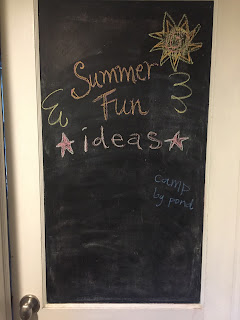 Summer
Fun
ideas
camp
by pond